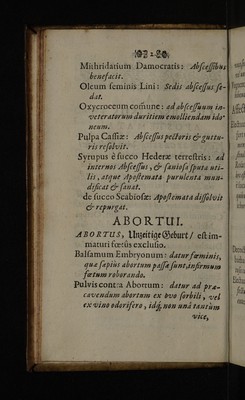 2
Mithridatium Damocratis: Abscessibus
benefacit.
Oleum seminis Lini: Sedis abscessus se-
dat.
Oxycroceum comune: ad abscessuum in-
veteratorum duritiem emolliendam ido-
neum.
Pulpa Cassiæ: Abscessus pectoris & guttu-
ris resolvit.
Syrupus è succo Hederæ terrestris: ad
internos Abscessus, & saniosa sputa uti-
lis, atque Apostemata purulenta mun-
dificat & sanat.
de succo Scabiosæ: Apostemata dissolvit
& repurgat.
ABORTUI.
ABORTUS, Unzeitige Geburt / est im-
maturi fœtûs exclusio.
Balsamum Embryonum: datur fœminis,
quæ sæpiùs abortum passæ sunt, infirmum
fœtum roborando.
Pulvis contra Abortum: datur ad præ-
cavendum abortum ex ovo sorbili, vel
ex vino odorifero, idq; non unâ tantùm
vice,